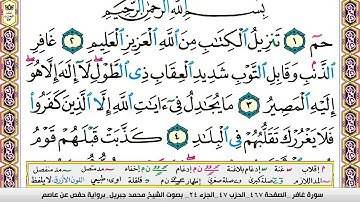 بِسْمِ اللَّهِ الرَّحْمَٰنِ الرَّحِيمِ
حمٓ ١ تَنزِيلُ ٱلْكِتَٰبِ مِنَ ٱللَّهِ ٱلْعَزِيزِ ٱلْعَلِيمِ ٢ غَافِرِ
ٱلذَّنۢبِ وَقَابِلِ ٱلتَّوْبِ شَدِيدِ ٱلْعِقَابِ ذِى ٱلطَّوْلِ ۖ لَآ إِلَٰهَ إِلَّا هُوَ ۖ
إِلَيْهِ ٱلْمَصِيرُ ٣ مَا يُجَٰدِلُ فِىٓ ءَايَٰتِ ٱللَّهِ إِلَّا ٱلَّذِينَ كَفَرُوا۟
فَلَا يَغْرُرْكَ تَقَلُّبُهُمْ فِى ٱلْبِلَٰدِ ٤ كَذَّبَتْ قَبْلَهُمْ قَوْمُ
سورة غافر _ الصفحة ٤٦٧ _ الحزب ٤٧ _ الجزء ٢٤ _ بصوت الشيخ محمد جبريل _ برواية حفص عن عاصم